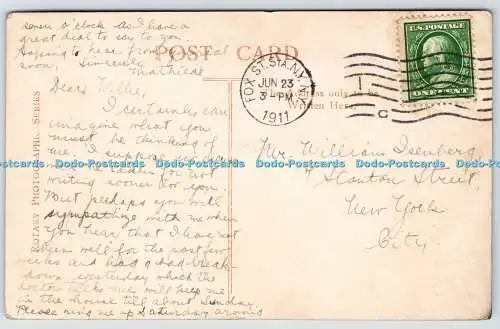 seven o'clock as I have a
great deal to say to you.
Hoping to hear from you real
soon, Sincerely
Mathilde
POST CARD
Dear Willie,
I certainly can
imagine what you
must be thinking of
me. I suppose
for not
writing sooner to you.
But perhaps you will
sympathize with me when
you hear that I have not
been well for the past few
weeks and had a bad break
down yesterday which the
doctor tells me will keep me
in the house till about Sunday.
Please ring me up Saturday around
ROTARY PHOTOGRAPHIC SERIES
FOX ST. STA. N.Y.
JUN 23
3-PM
1911
C
U.S. POSTAGE
ONE CENT
The Address only to be
Written Here.
Mr. William Isenberg
Stanton Street,
New York
City.
Dodo-Postcards Dodo-Postcards Dodo-Postcards Dodo-Postcards